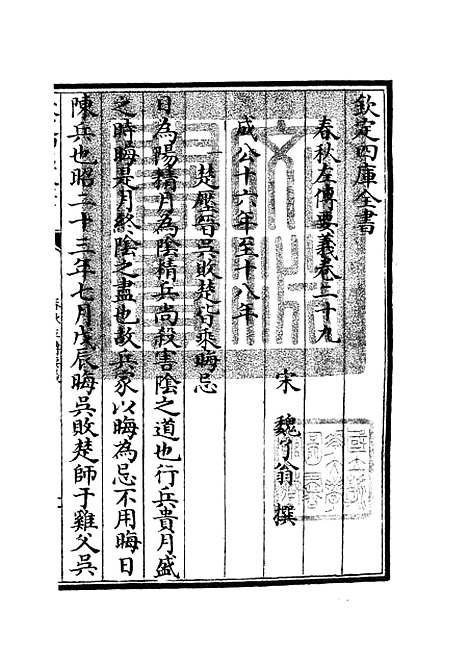 欽定四庫全書
春秋左傳要義卷二十九
宋 魏了翁 撰
成公十六年至十八年
一楚壓晉吳敗楚皆乘晦忌
日為陽精月為陰精兵尚殺害陰之道也行兵貴月盛
之時晦是月終陰之盡也故兵家以晦為忌不用晦日
陳兵也昭二十三年七月戊辰晦吳敗楚師于雞父吳